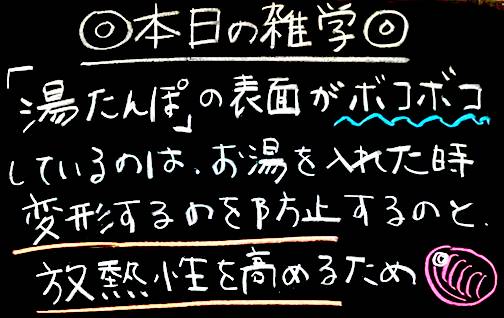 ◎本日の雑学◎
「湯たんぽ」の表面がボコボコ
しているのは、お湯を入れた時
変形するのを防止するのと、
放熱性を高めるため